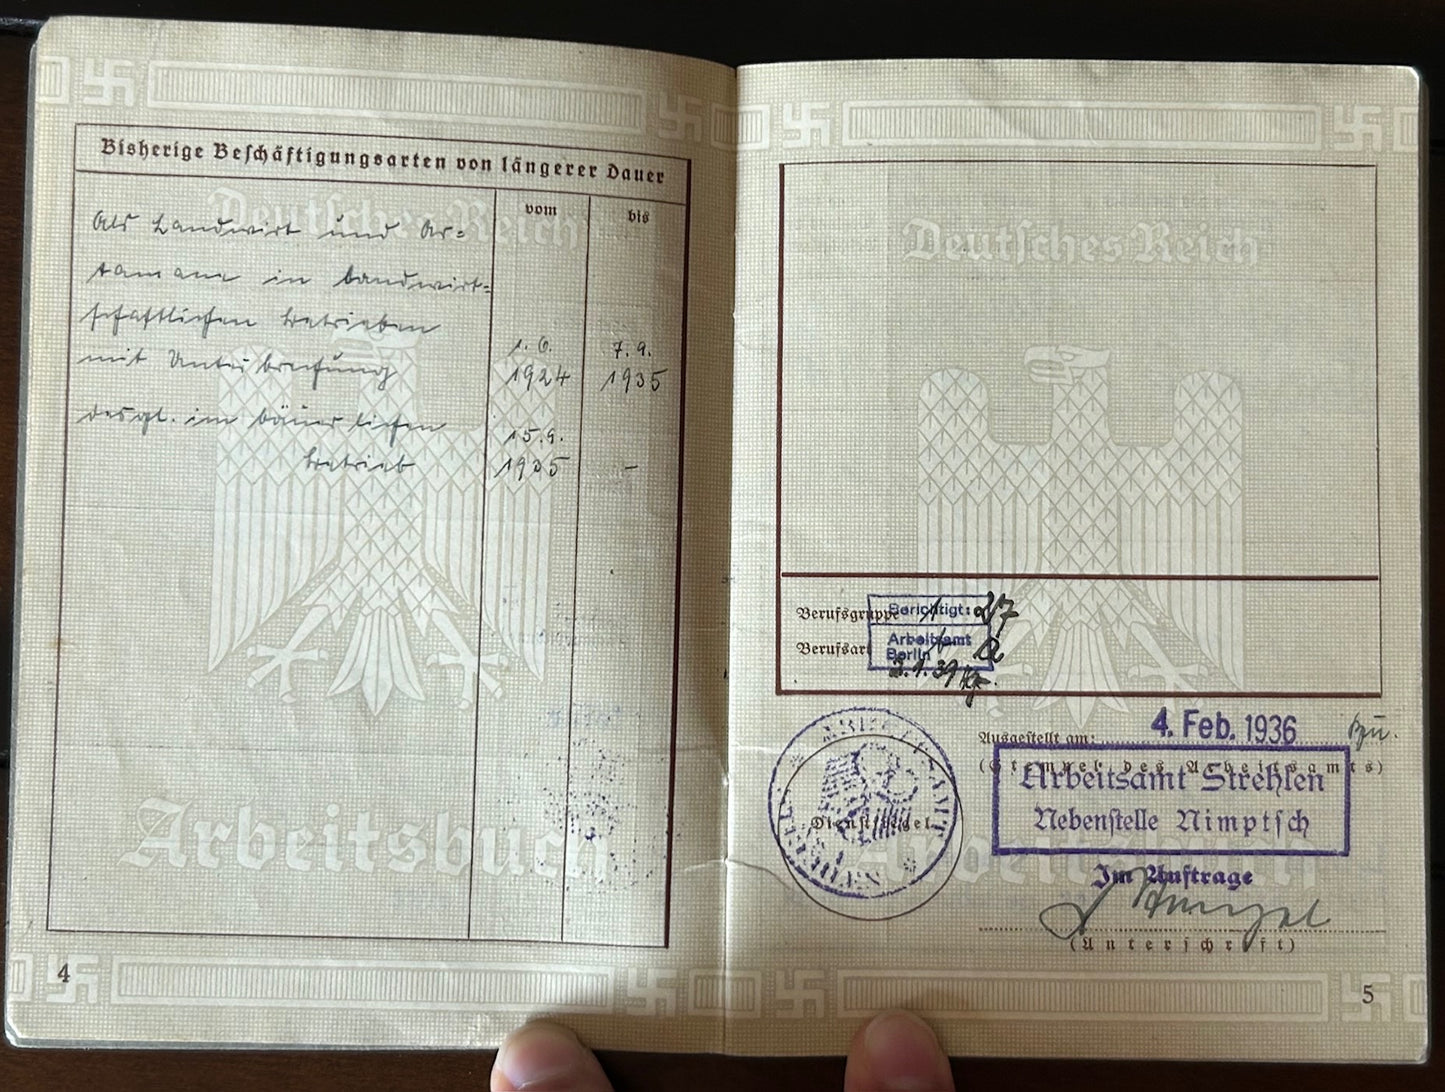 Bisherige Beschäftigungsarten von längerer Dauer
vom bis
Deutsches Reich
Als Landwirt und Ar=
tamane in landwirt=
schaftlichen Betrieben
mit Unterbrechung
1.6. 7.9.
1924 1935
desgl. im bäuerlichen
Betrieb
15.9.
1935 –
Arbeitsbuch
4
Deutsches Reich
Berufsgruppe
Berichtigt:
Berufsart
Arbeitsamt
Berlin
Ausgestellt am: 4. Feb. 1936
(Stempel des Arbeitsamts)
Arbeitsamt Strehlen
Nebenstelle Nimptsch
Dienstsiegel
Im Auftrage
(Unterschrift)
Arbeitsbuch
5